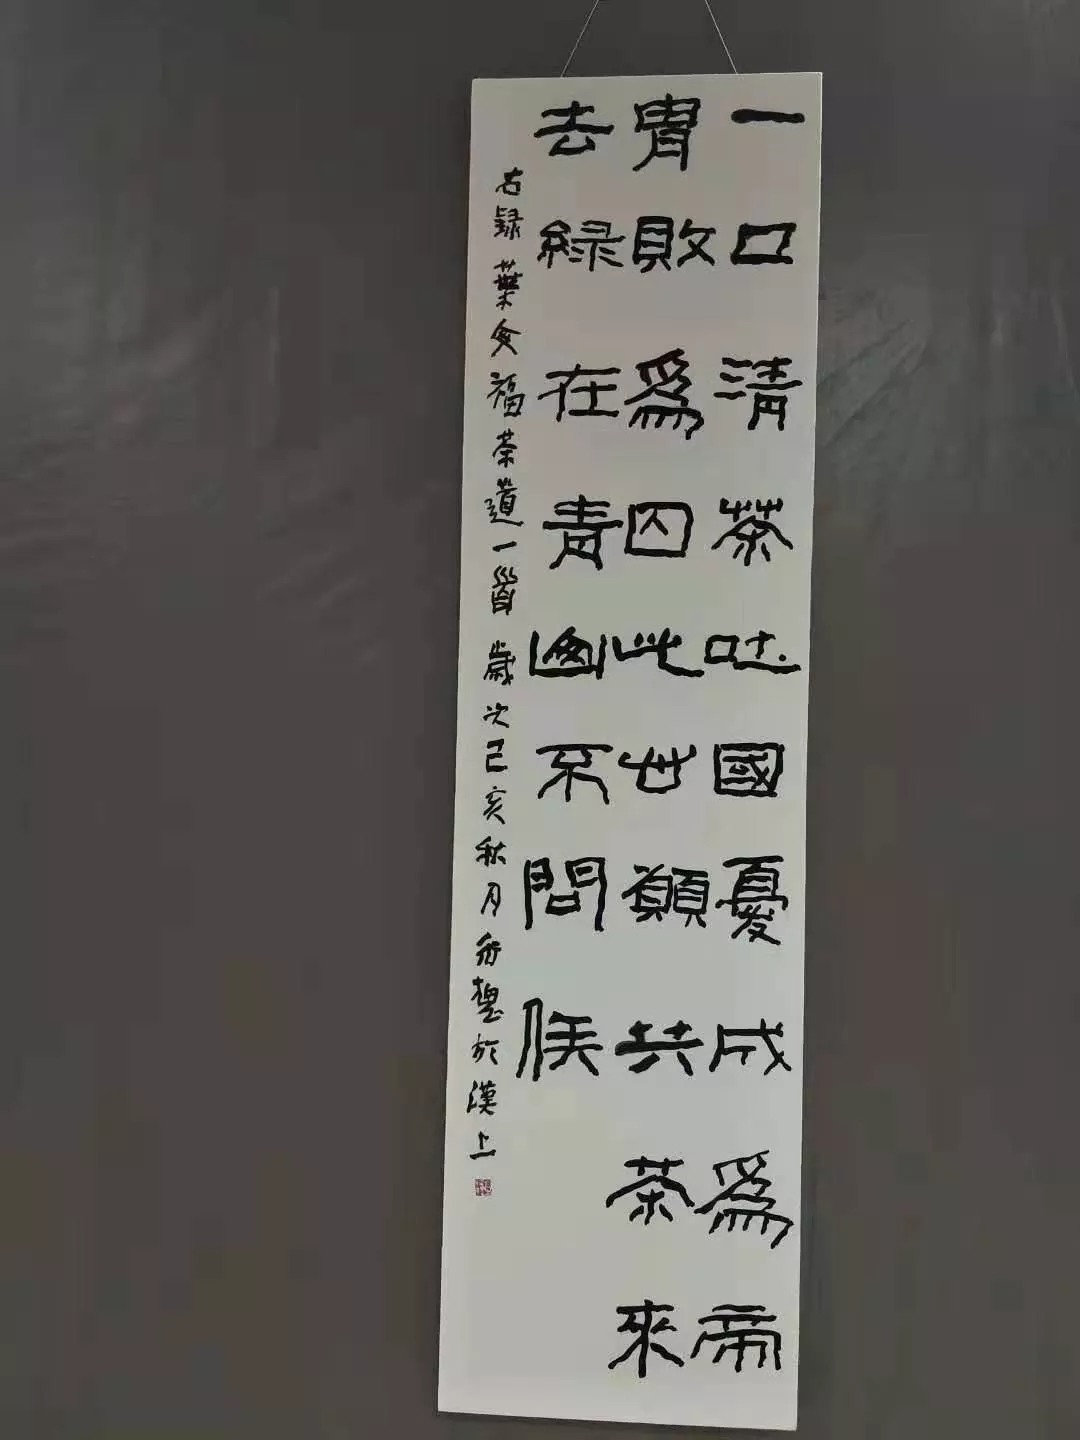 一口清茶吐國憂成為帝
胄敗為囚此世願共茶來
去緑在青幽不問侯
右録葉文福茶道一首歲次己亥秋月於漢上